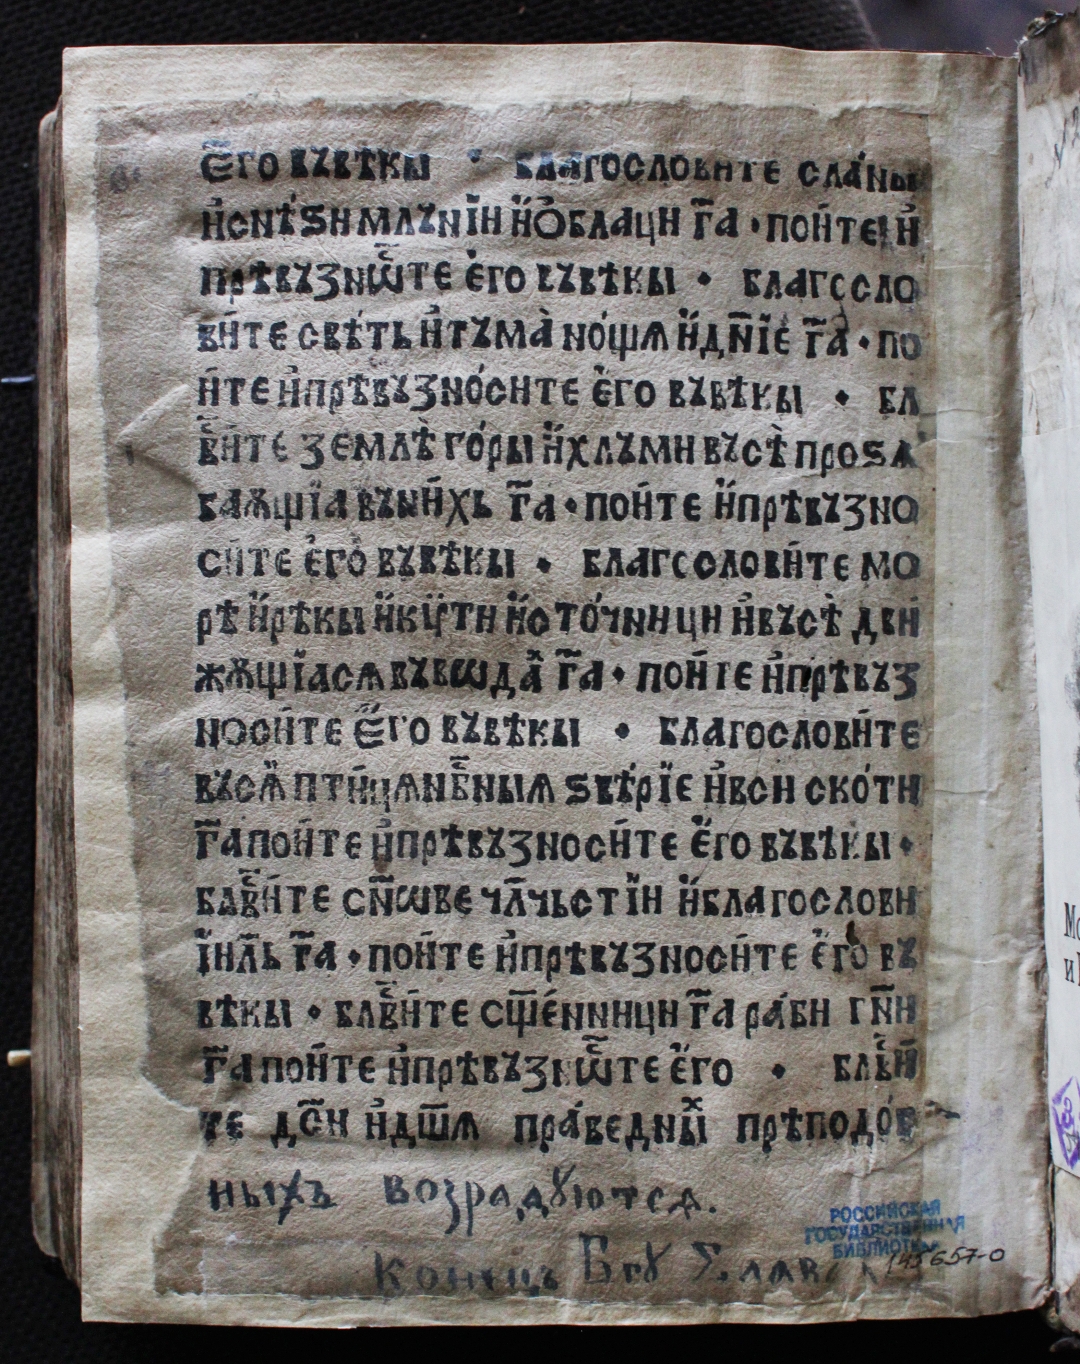 Е҆го въвѣкы · благословите сла́ны
и҆снѣ́ѕи млънїи и҆ѻ҆блаци г҃а · пои́те и҆
прѣвъзнѡⷭ҇те є҆го въвѣкы · благосло
ви́те свѣ́ть и҆тъма̀ но́щѧ и҆дн҃їе г҃а · по
и́те и҆прѣвъзно́сите є҆го въвѣкы · бл
ви́те землѣ го́ры и҆хлъми въсѐ проѕѧ
баѫщїа въни́хь г҃а · пои́те и҆прѣвъзно
си́те є҆го̀ въвѣкы · благослови́те мо
рѣ и҆рѣкы и҆ки́ти и҆сто́чници и҆въсѐ дви́
жѫщїасѧ въвѡда́ⷯ г҃а · пои́те и҆прѣвъз
носи́те Е҆го въвѣкы · благослови́те
въсѧ̀ пти́цѧ нбⷭ҇ныѧ ѕвѣ́рїе и҆вси ско́ти
г҃а пои́те и҆прѣвъзноси́те є҆го въвѣкы ·
блⷭ҇ви́те сн҃ѡве чл҃чьстїи и҆благослови
їил҃ь г҃а · пои́те и҆прѣвъзноси́те є҆го въ
вѣкы · блⷭ҇ви́те сщ҃е́нници г҃а ра́би гн҃и
г҃а пои́те и҆прѣвъзнѡⷭ҇те є҆го · блⷭ҇ви́
те дс҃и и҆дш҃ѧ пра́ведныⷯ прѣподо́б
ныхъ возрадꙋютсѧ.
Конецъ Бгꙋ Слава
РОССИЙСКАЯ
ГОСУДАРСТВЕННАЯ
БИБЛИОТЕКА
143657-о